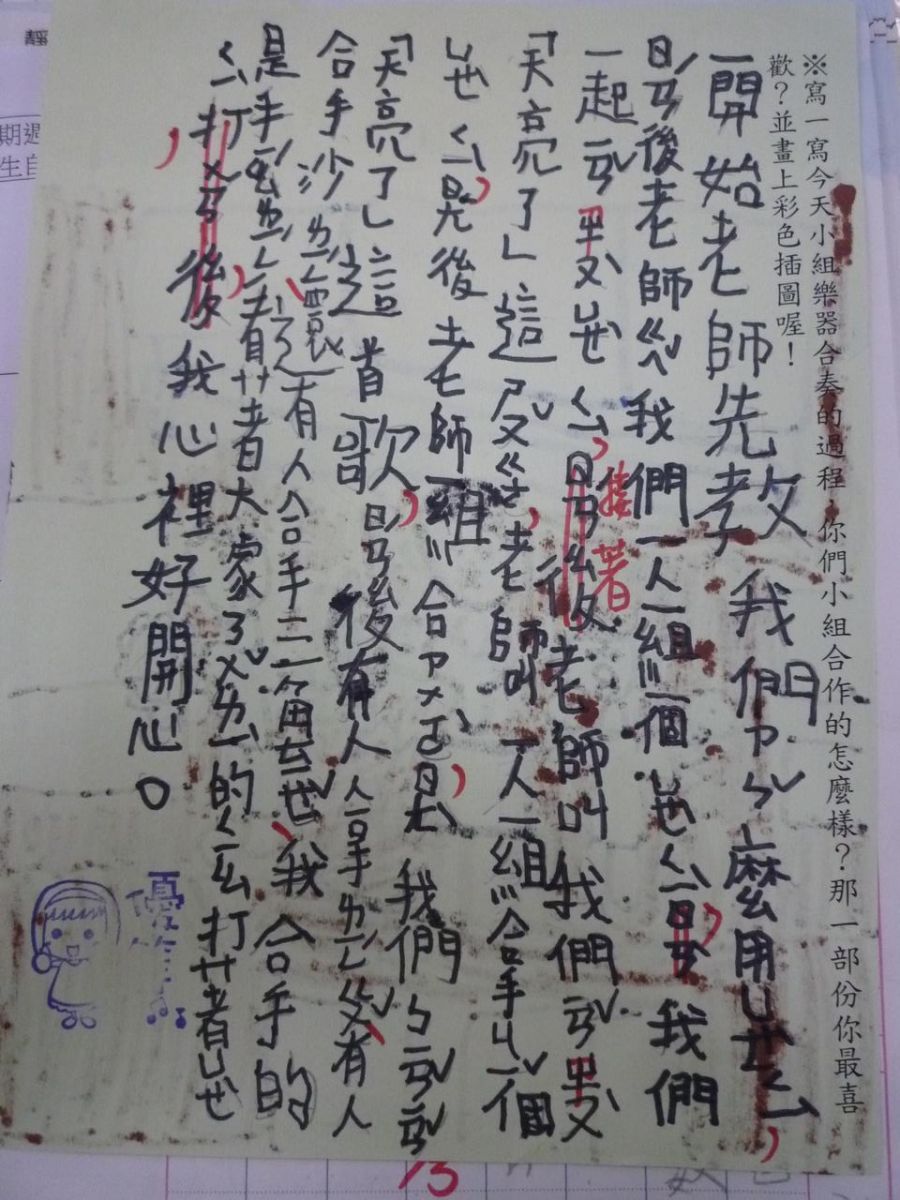 ※寫一寫今天小組樂器合奏的過程,你們小組合作的怎麼樣?那一部份你最喜
歡?並畫上彩色插圖喔!
一開始老師先教我們ㄗㄣˇ麼用ㄩㄝˋㄑㄧˋ,
ㄖㄢˊ後老師ㄍㄟˇ我們一人一組一個ㄩㄝˋㄑㄧˋ,我們
一起ㄧㄢˇㄩㄝˋㄑㄧˋ,接著ㄖㄢˊ後老師叫我們ㄧㄢˇ
「天亮了」這ㄕㄡˇㄍㄜ,老師叫一人一組拿ㄐㄧˇ個
ㄩㄝˋㄑㄧˋ,後老師一組合ㄗㄡˋ,我們ㄅㄧㄠˇㄧㄢˇ
「天亮了」這首歌,ㄖㄢˊ後有人拿ㄌㄧㄥˊㄍㄨˇ,有人
拿沙ㄌㄧㄥˊ,還有人拿三角ㄊㄧㄝˇ,我拿的
是手ㄧㄠˊㄌㄧㄥˊ,看著大家ㄋㄨˇㄌㄧˋ的ㄑㄧㄠ打著ㄩㄝˋ
ㄑㄧˋ,打ㄨㄢˊ後我心裡好開心。